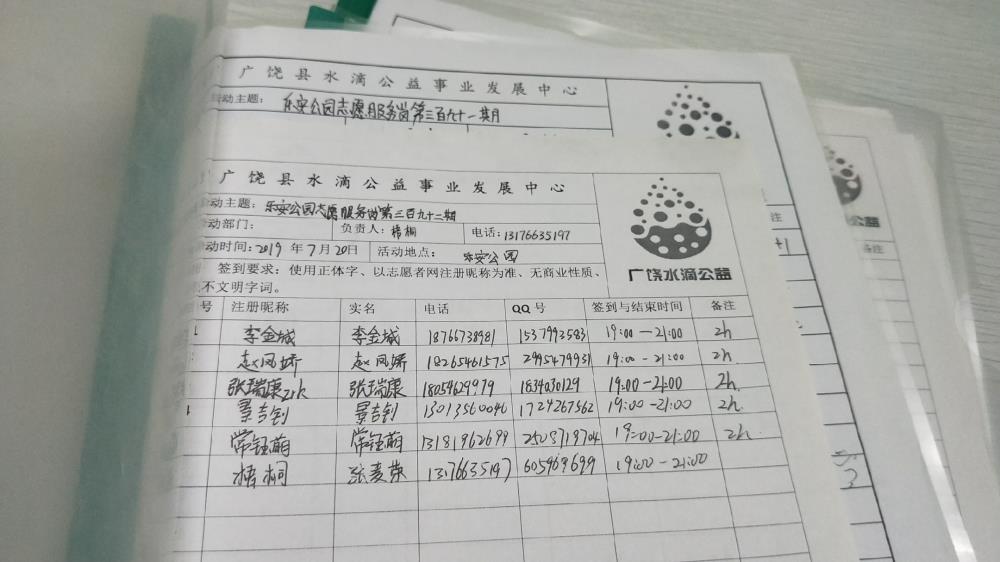 广饶县水滴公益事业发展中心
动主题: 乐安公园志愿服务岗第三百九十一期
广饶县水滴公益事业发展中心
动主题: 乐安公园志愿服务岗第三百九十二期
动部门: 负责人: 梧桐 电话: 13176635197
动时间: 2019 年 7 月 20 日 活动地点: 乐安公园
签到要求：使用正体字、以志愿者网注册昵称为准、无商业性质、
不文明字词。
广饶水滴公益
号 注册昵称 实名 电话 QQ 号 签到与结束时间 备注
李金城 李金城 18766738981 1537993583 19:00—21:00 2h
赵凤娇 赵凤娇 18265461575 2995479931 19:00-21:00 2h
张瑞康zrk 张瑞康 18054629979 1834030129 19:00-21:00 2h.
景吉钊 景吉钊 13013560046 1724267562 19:00-21:00 2h.
常钰萌 常钰萌 13181962699 2503719704 19:00-21:00 2h.
梧桐 张麦荣 13176635197 605969699 19:00-21:00
注
+1
公益
备注
3